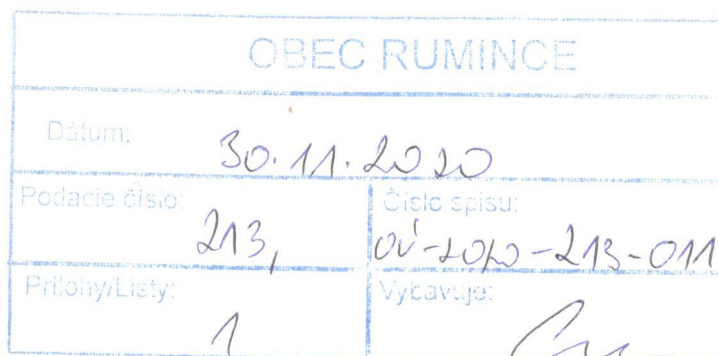 OBEC RUMINCE
Dátum: 30.11.2020
Podacie číslo: 213,
Číslo spisu: OÚ-2020-213-011
Prílohy/Listy: 1
Vybavuje: